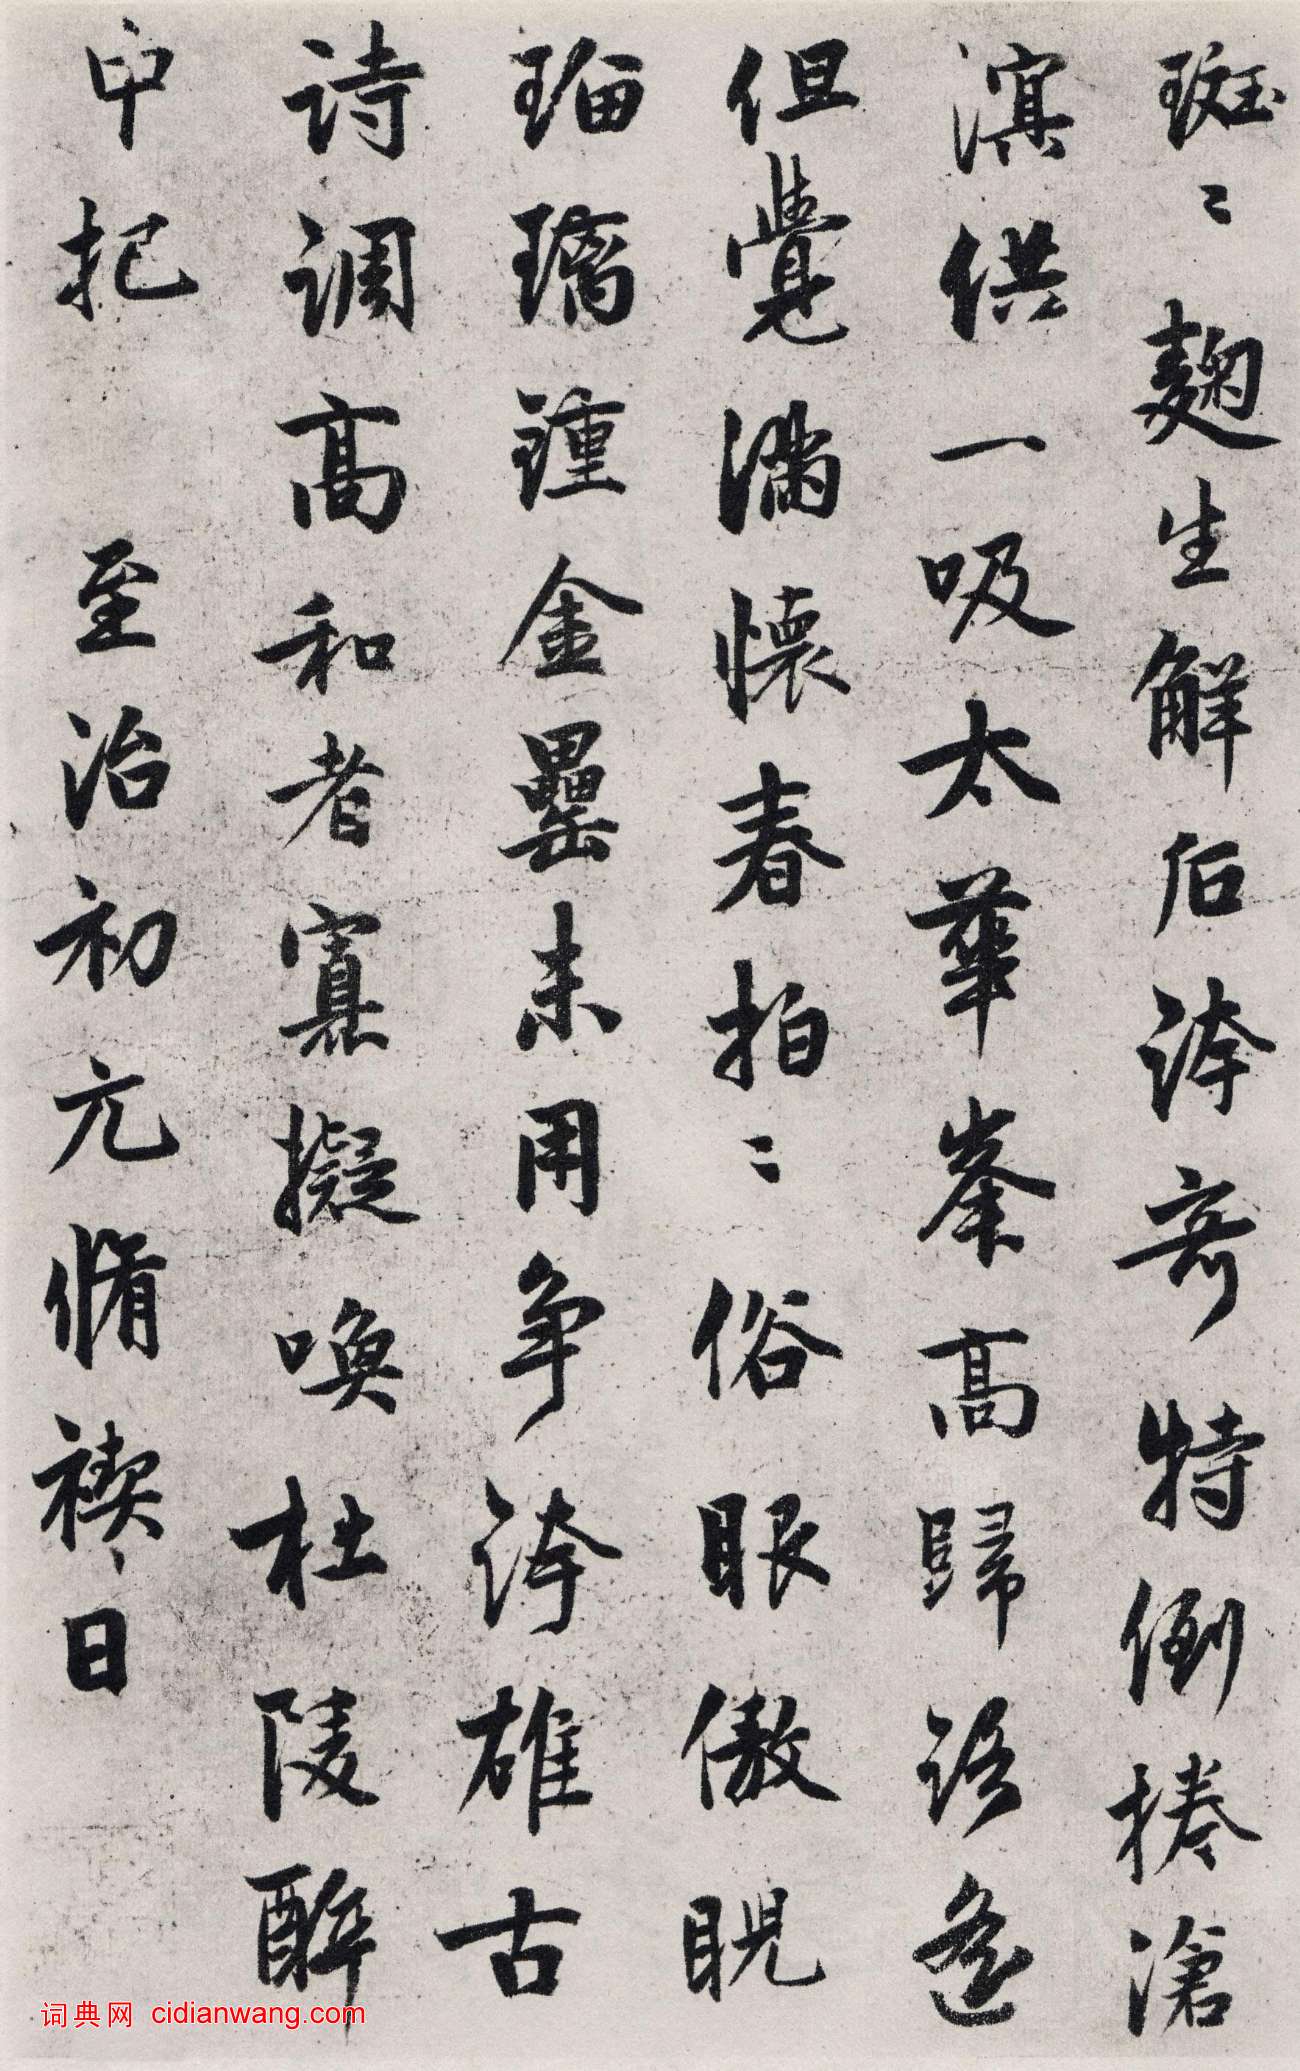 斑〻麹生解后誇奇特倒捲滄
溟供一吸太華峯高歸語遙
但覺滿懷春拍〻俗眼傲睨
瑠璃鍾金罍未用争誇雄古
詩調高和者寡擬喚杜陵醉
中把 至治初元脩禊日
词典网 cidianwang.com